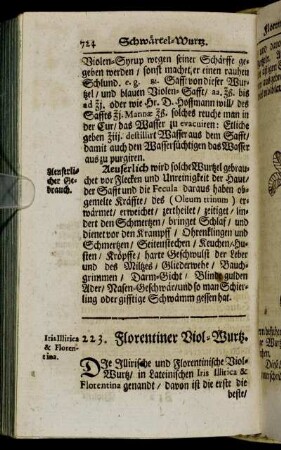 724 Schwärtel-Wurtz.
Violen-Syrup wegen seiner Schärffe ge-
geben werden / sonst machet er einen rauhen
Schlund. e. g. ℞. Safft von dieser Wur-
tzel / und blauen Violen-Safft / aa. ℥ß. biß
ad ℥j. oder wie Hr. D. Hoffmann will / des
Saffts ℥j. Mannæ ℥ß. solches reuche man in
der Cur / das Wasser zu evacuiren: Etliche
geben ℥iij. destillirt Wasser aus dem Safft /
damit auch den Wassersüchtigen das Wasser
aus zu purgiren.
Aeusserli-
cher Ge-
brauch.
Aeuserlich wird solche Wurtzel gebrau-
chet vor Flecken und Unreinigkeit der Haut /
der Safft und die Fecula daraus haben ob-
gemelte Kräffte / des (Oleum irinum) er-
wärmet / erweichet / zertheilet / zeitiget / lin-
dert den Schmertzen / bringet Schlaf / und
dienet vor den Krampff / Ohrenklingen und
Schmertzen / Seitenstechen / Keuchen / Hu-
sten / Kröpffe / harte Geschwulst der Leber
und des Miltzes / Gliederwehe / Bauch-
grimmen / Darm-Gicht / Blinde gulden
Ader / Nasen-Geschwär / und so man Schier-
ling oder gifftige Schwämm gessen hat.
Iris Illirica
& Floren-
tina.
223. Florentiner Viol-Wurtz.
Die Illirische und Florentinische Viol-
Wurtz / in Lateinischen Iris Illirica &
Florentina genandt / davon ist die erste die
beste /